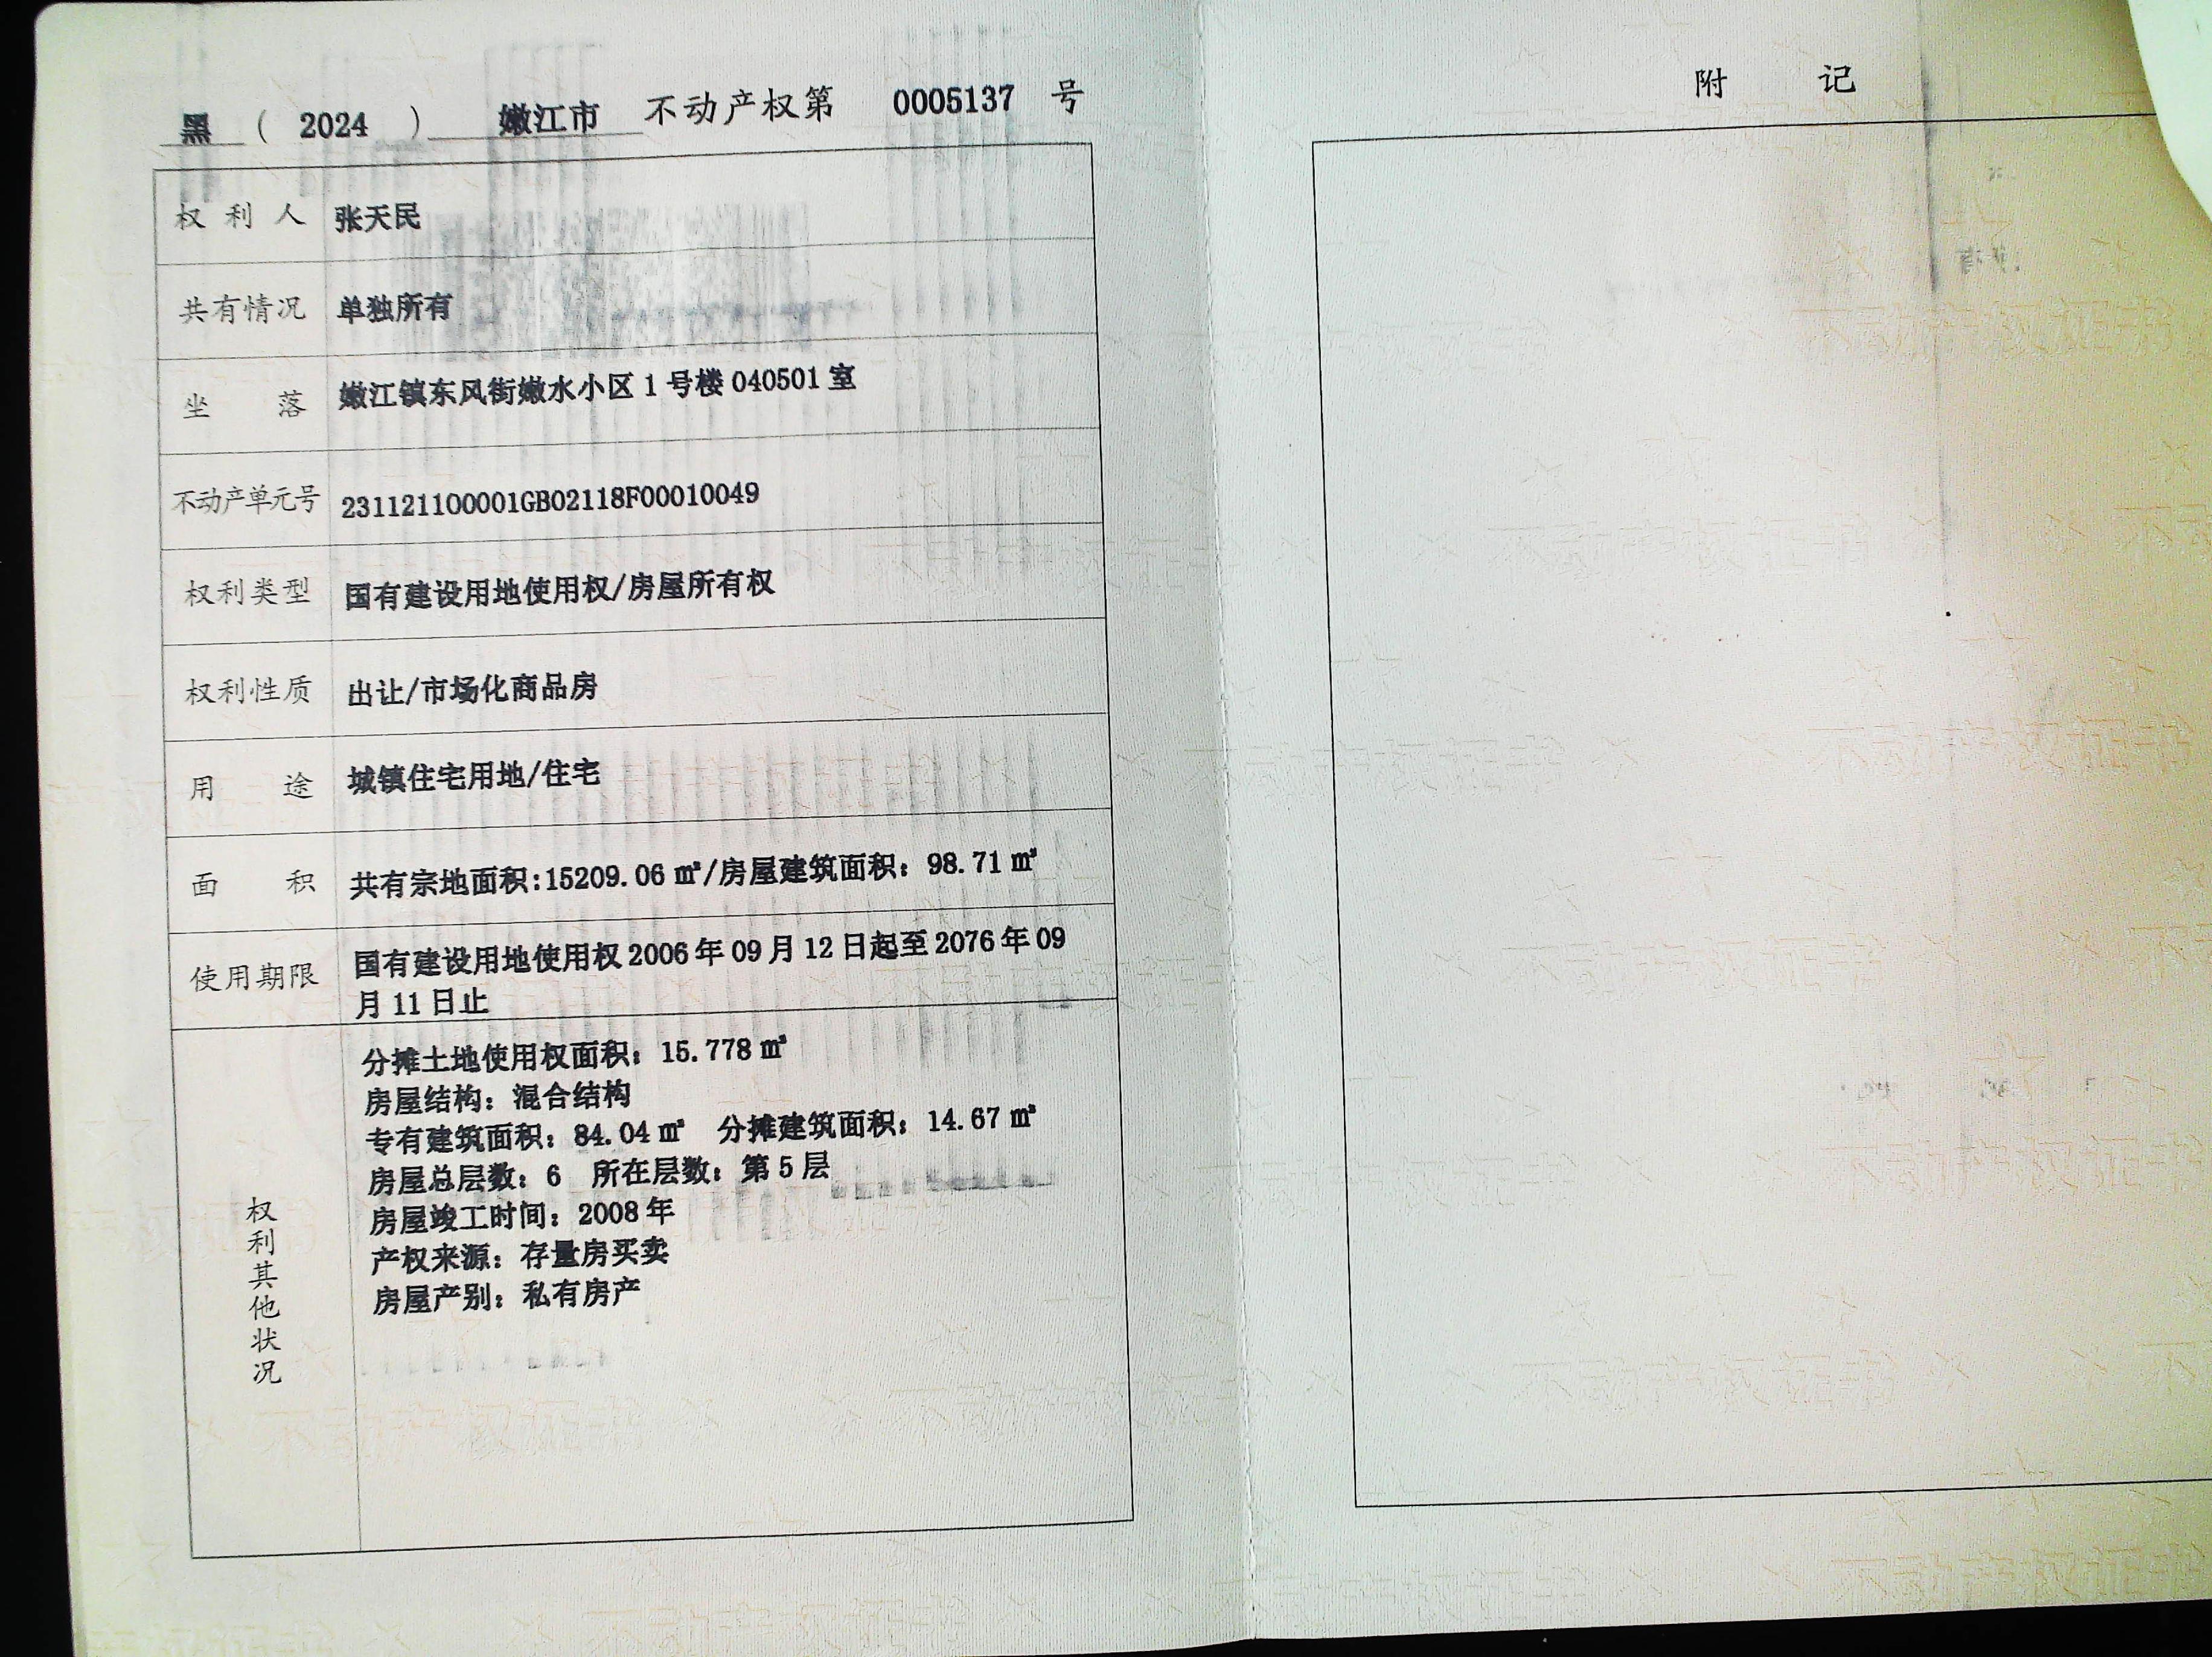 黑 ( 2024 ) 嫩江市 不动产权第 0005137 号
权利人 张天民
共有情况 单独所有
坐落 嫩江镇东风街嫩水小区1号楼040501室
不动产单元号 231121100001GB02118F00010049
权利类型 国有建设用地使用权/房屋所有权
权利性质 出让/市场化商品房
用途 城镇住宅用地/住宅
面积 共有宗地面积:15209.06㎡/房屋建筑面积：98.71㎡
使用期限 国有建设用地使用权2006年09月12日起至2076年09
月11日止
权利其他状况
分摊土地使用权面积：15.778㎡
房屋结构：混合结构
专有建筑面积：84.04㎡ 分摊建筑面积：14.67㎡
房屋总层数：6 所在层数：第5层
房屋竣工时间：2008年
产权来源：存量房买卖
房屋产别：私有房产
附记